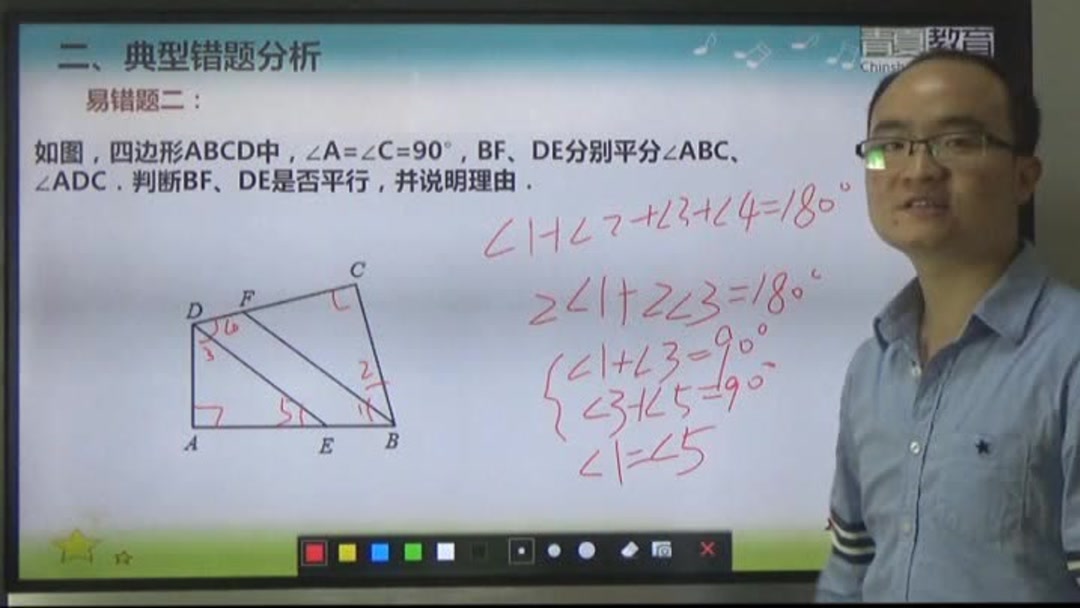 二、典型错题分析
教育
易错题二：
如图，四边形ABCD中，∠A=∠C=90°，BF、DE分别平分∠ABC、
∠ADC．判断BF、DE是否平行，并说明理由．
∠1+∠2+∠3+∠4=180°
2∠1+2∠3=180°
∠1+∠3=90°
∠3+∠5=90°
∠1=∠5
C
D
F
3
2
5
1
A
E
B